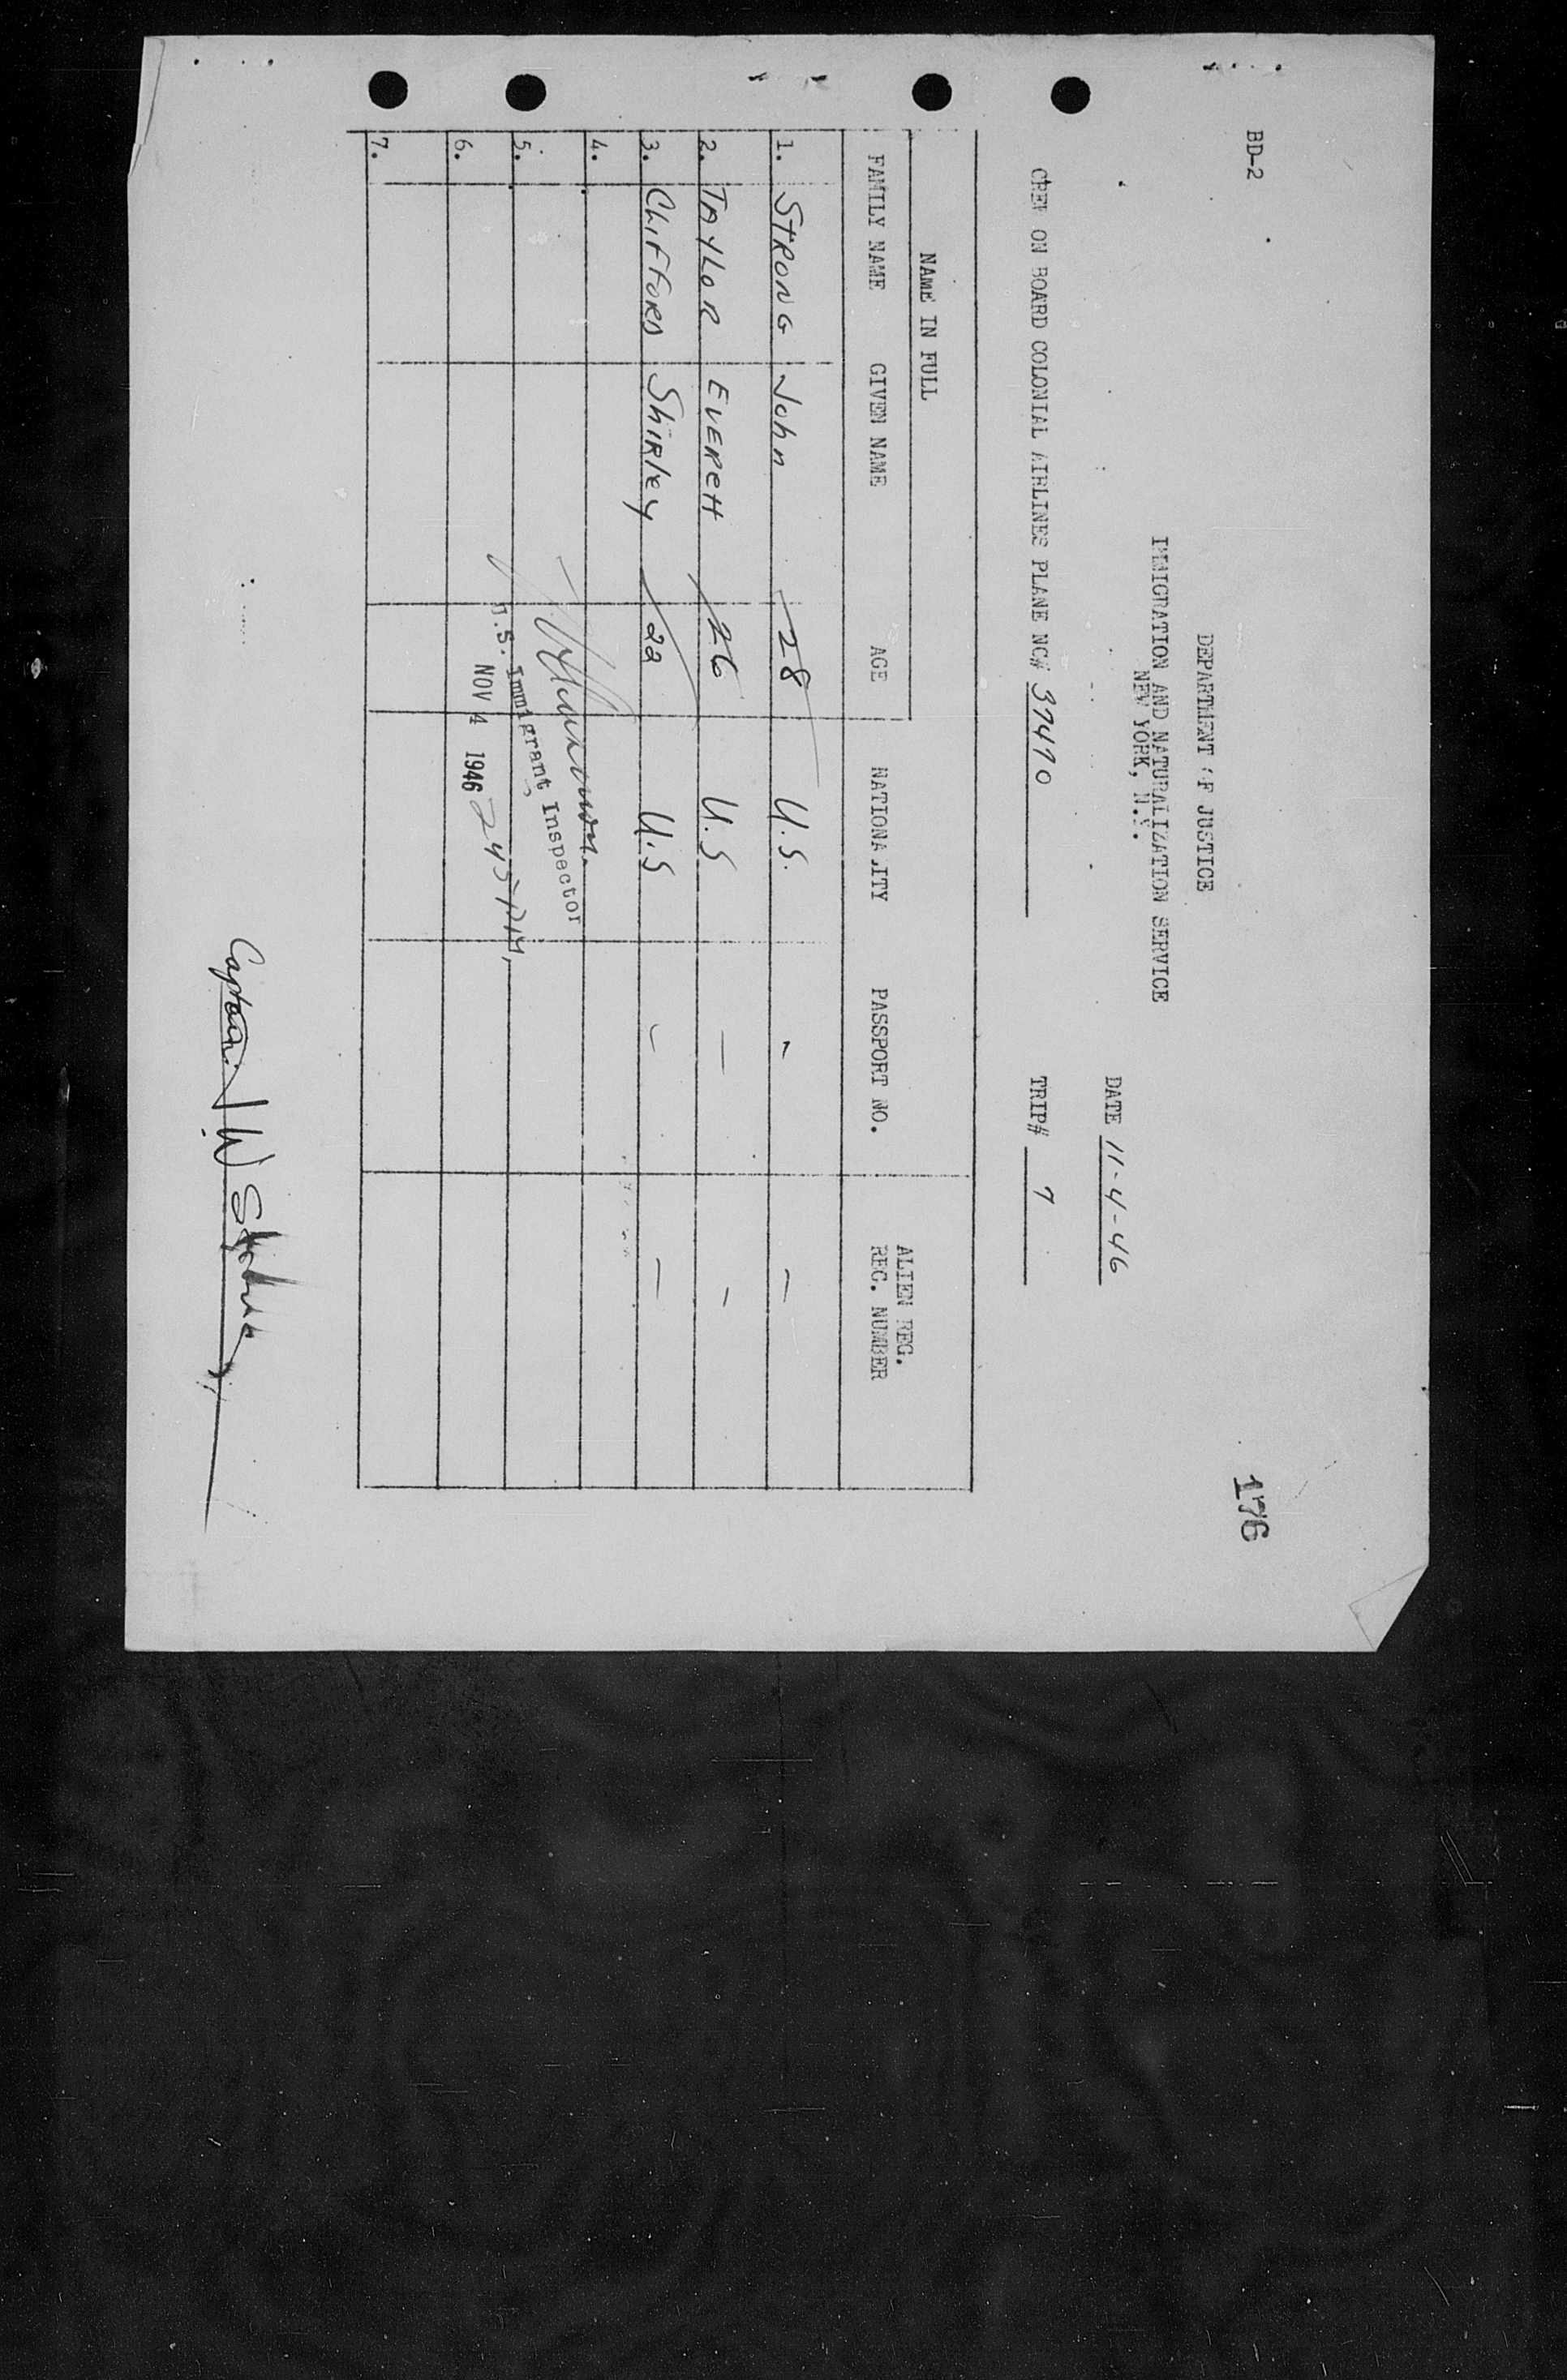 BD-2
176
DEPARTMENT OF JUSTICE
IMMIGRATION AND NATURALIZATION SERVICE
NEW YORK, N.Y.
DATE 11-4-46
CREW ON BOARD COLONIAL AIRLINES PLANE NC# 37470 TRIP# 7
NAME IN FULL
ALIEN REG.
FAMILY NAME GIVEN NAME AGE NATIONALITY PASSPORT NO. REG. NUMBER
1. STRONG John 28 U.S. - -
2. TAYLOR EVERETT 26 U.S - -
3. CLIFFORD SHIRLEY 22 U.S - -
4.
5.
U.S. Immigrant Inspector
6.
NOV 4 1946 245 PM,
7.
Captain J W